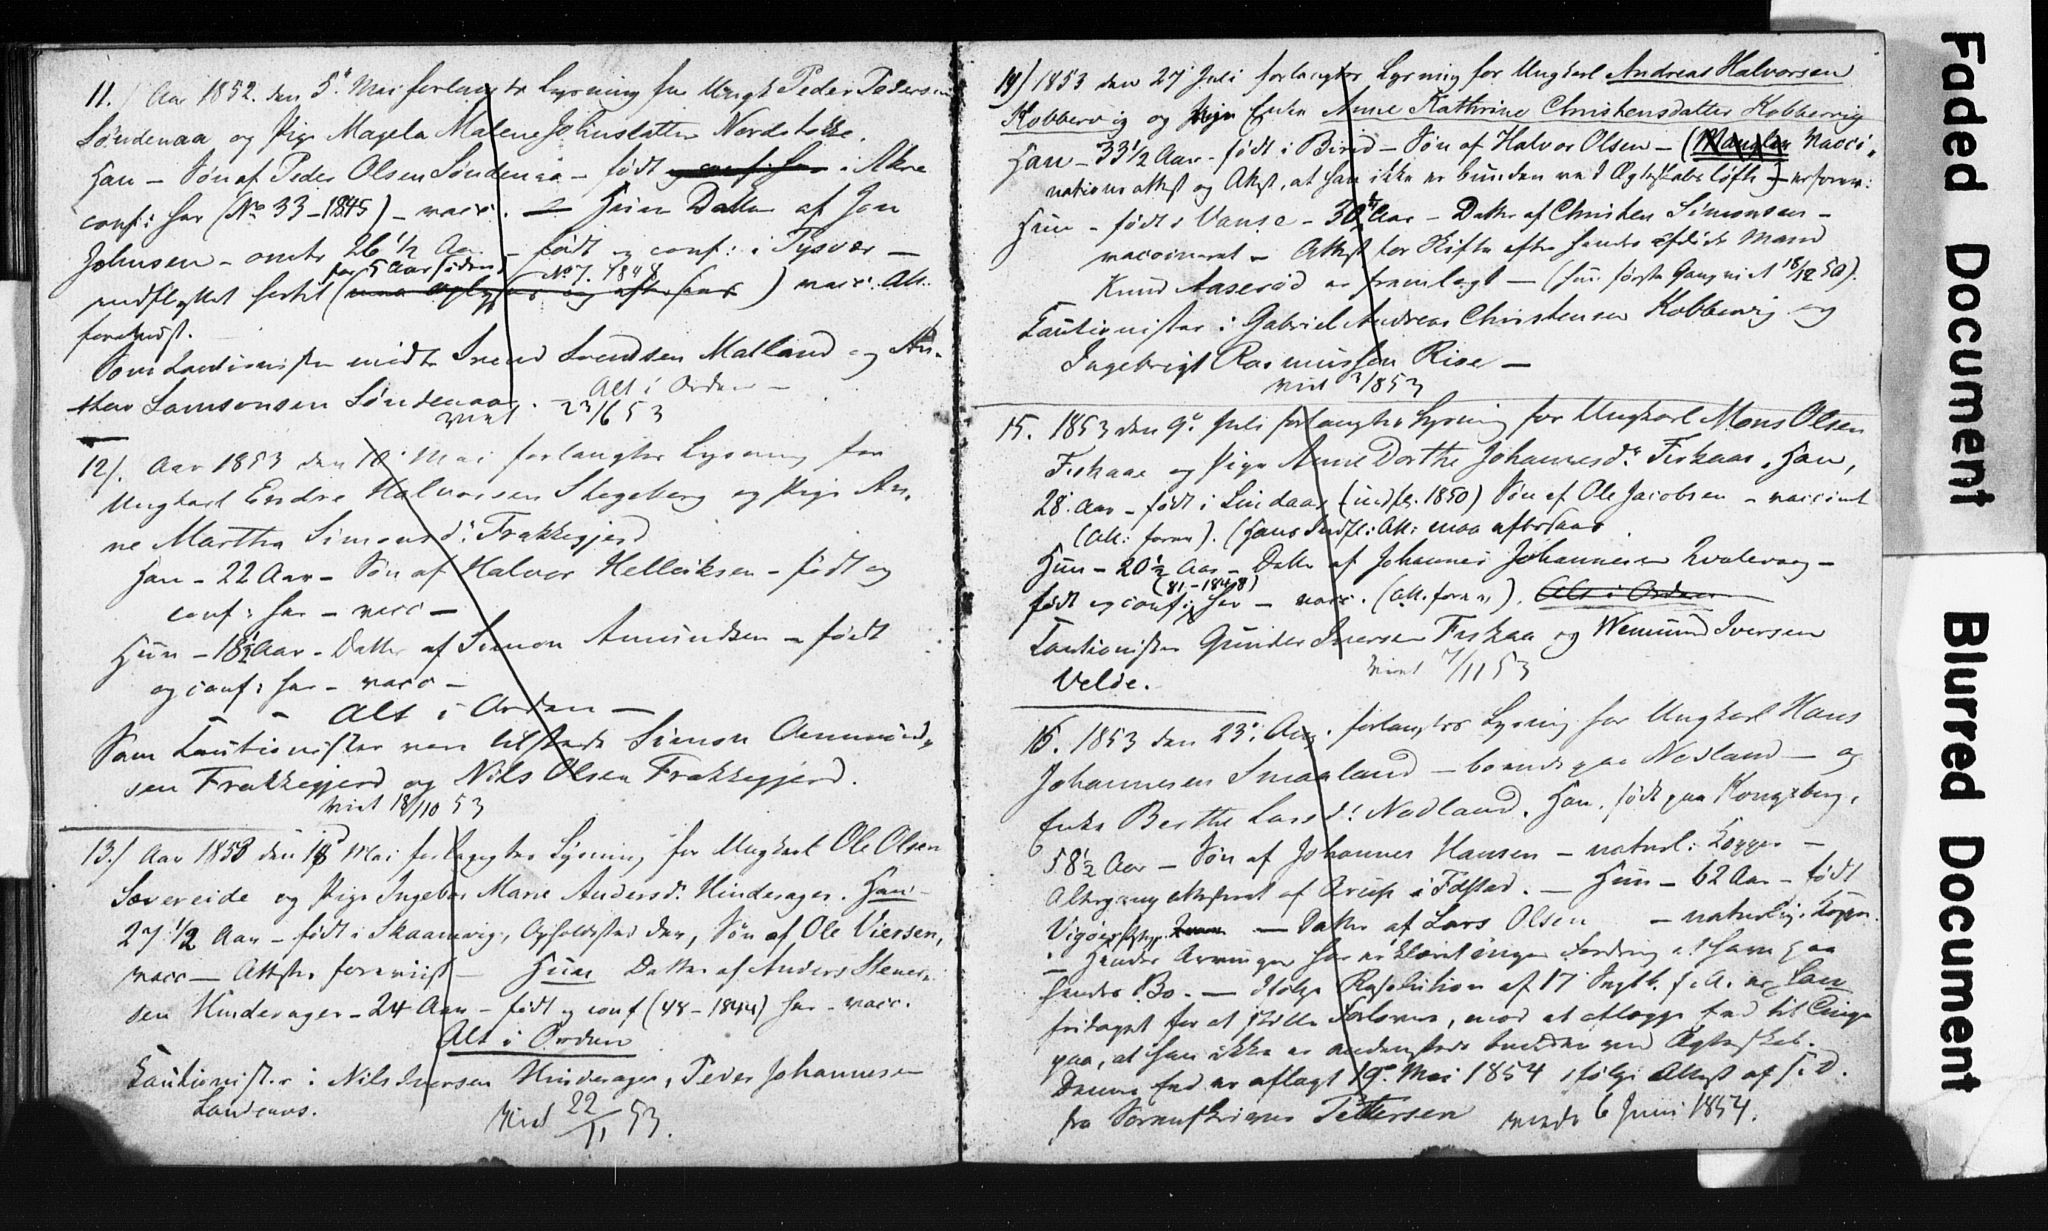 11.) Aar 1852. den 5t Mai forlangtes Lysning for Ungk Peder Pedersen
Søndenaa og Pige Magela Malene Johnsdatter Nordstokke.
Han – Søn af Peder Olsen Søndenaa – født i Akre
conf: her (No 33 – 1845) – vacc. – Hun Datter af Jon
Johnsen – omtr 26 1/2 Aar – født og conf: i Tysvær –
for 5 Aar siden No 7. 1848
indflyttet hertil ( ) vacc. Att.
forevist.
Som Cautionister meldte Svend Svendsen Matland og
Samsonsen Søndenaa. Alt i Orden –
viet 23/6 53
12). Aar 1853 den 10 Mai forlangtes Lysning for
Ungkarl Endre Halvorsen Stegeberg og Pige An-
ne Martha Simonsd: Frakkegjerd
Han – 22 Aar – Søn af Halvor Helliksen – født og
conf: her – vacc –
Hun – 18 1/2 Aar – Datter af Simon Amundsen – født
og conf: her – vacc –
– Alt i Orden –
Som Cautionister vare tilstede Simon Ammund-
sen Frakkegjerd og Nils Olsen Frakkegjerd.
viet 18/10 53
13.) Aar 1853 den 18 Mai forlangtes Lysning for Ungkarl Ole Olsen
Sævereide og Pige Ingebor Marie Andersd. Hinderager. Han –
27 1/2 Aar – født i Skaanevig, Opholdsted der, Søn af Ole Viersen,
vacc – Attester forevist – Hun Datter af Anders Stener-
sen Hinderager – 24 Aar – født og conf (48 – 1844) her – vacc.
Alt i Orden
Cautionister: Nils Iversen Hinderager, Peder Johannesen
Landenæs. Viet 22/11 53.
14) 1853 den 27 Juli forlangtes Lysning for Ungkarl Andreas Halvorsen
Kobbervig og Enke Anne Kathrine Christensdatter Kobbervig
Han – 33 1/2 Aar – født i Birid – Søn af Halvor Olsen – (Mangler Vacci-
nationsattest og Attest, at han ikke er bunden ved Ægteskabsløfte –
Hun – født i Vanse – 30 Aar – Datter af Christen Simonsen –
vaccineret – Attest for Skifte efter hendes afdøde Mand
Knud Aaserød er fremlagt – (hun første Gang viet 18/12 50).
Cautionister: Gabriel Andreas Christensen Kobbervig og
Ingebrigt Rasmussen Risø –
viet /853
15. 1853 den 9. Juli forlangtes Lysning for Ungkarl Mons Olsen
Fiskaae og Pige Anne Dorthe Johannesd. Fiskaae. Han,
28 Aar – født i Lindaas (indfl. 1850) Søn af Ole Jacobsen – vaccineret
(Att: forev). (Hans Indfl: Att: maa eftersees
Hun – 20 1/2 Aar – Datter af Johannes Johannesen Kvalevaag –
(81 – 1848)
født og conf: her – vacc. (Att. forev). Alt i Orden
Cautionister Gunder Iversen Fiskaa og Wemund Iversen
Velde. Viet 7/11 53
16. 1853 den 23. Aug. forlangtes Lysning for Ungkarl Hans
Johannesen Smaaland – boende paa Nodland – og
Enke Berthe Larsd: Nodland. Han, født paa Kongsberg,
58 1/2 Aar – Søn af Johannes Hansen – naturl: Kopper –
Altergang attesteret af Arup i Idsted. – Hun – 62 Aar – født
– Datter af Lars Olsen – naturlig Kopper.
– Hendes Arvinger har erklæret ingen Fordring at have paa
hendes Bo. – Ifølge Resolution af 17 Septb. f. A. er Han
fritaget for at stille Forlovere, mod at aflægge Eed til Tinge
paa, at han ikke er andensteds bunden ved Ægteskab.
Denne Eed er aflagt 19 Mai 1854 ifølge Attest af s. D.
fra Sorenskriver Pettersen viede 6 Juni 1854.
Faded Document
Blurred Document